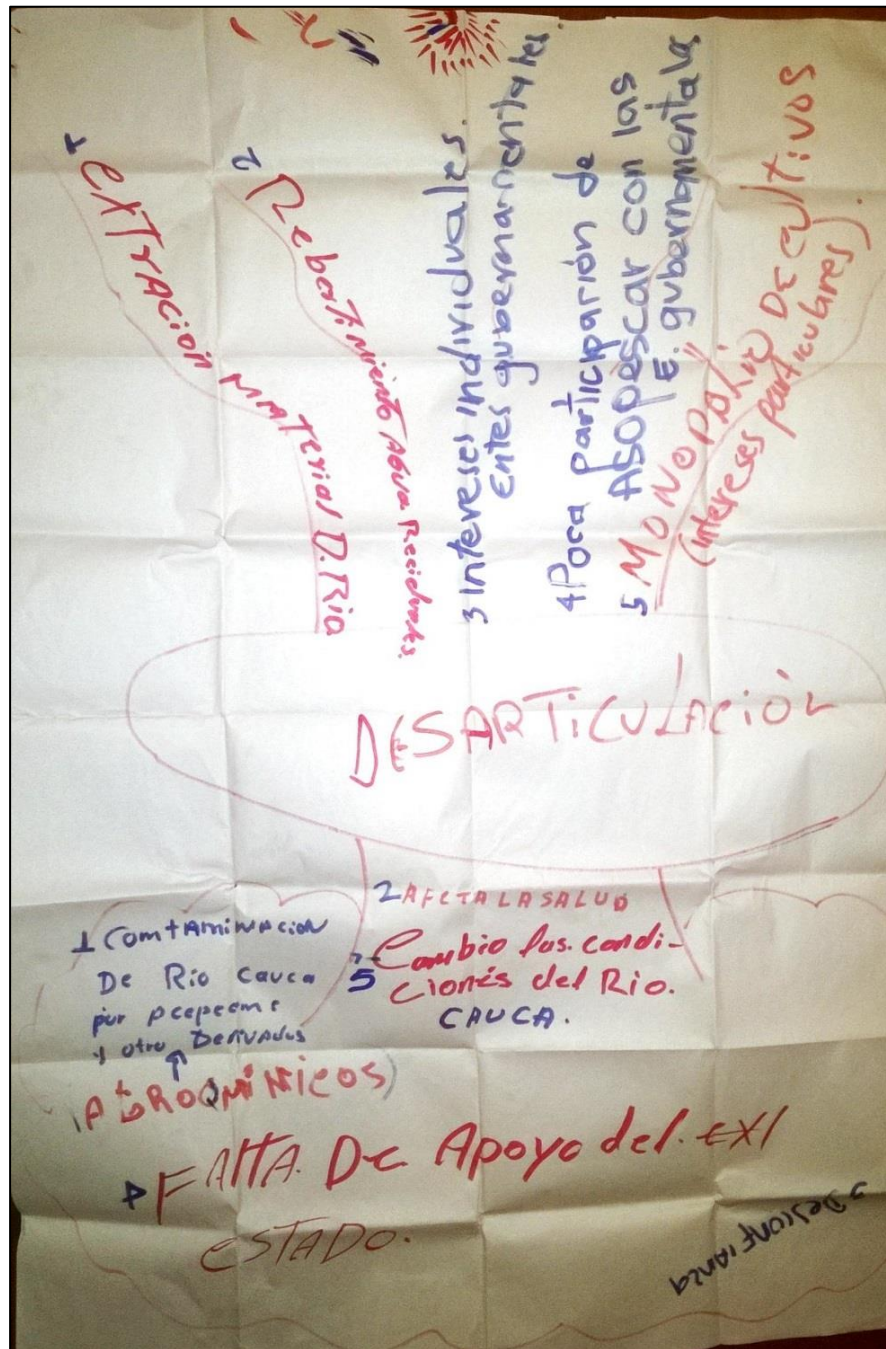 1 EXTRACION MATERIAL D. Rio
2 Rebertimiento Agua Reciduats.
3 Intereses individuales.
Entes gubernamentales.
4 Poca participarión de
ASOPESCAR con las
E. gubernamentales
5 MONOPOLIO DE CULTIVOS
(intereses particulares).
DESARTICULACIÓN
2 AFECTA LA SALUD
1 COMTAMINACION
De Rio cauca
por
y otro Derivados
(AGROQMIMICOS)
5 Cambio las condi-
ciones del Rio.
CAUCA.
4 FALTA De Apoyo del
ESTADO.
Desconfianza